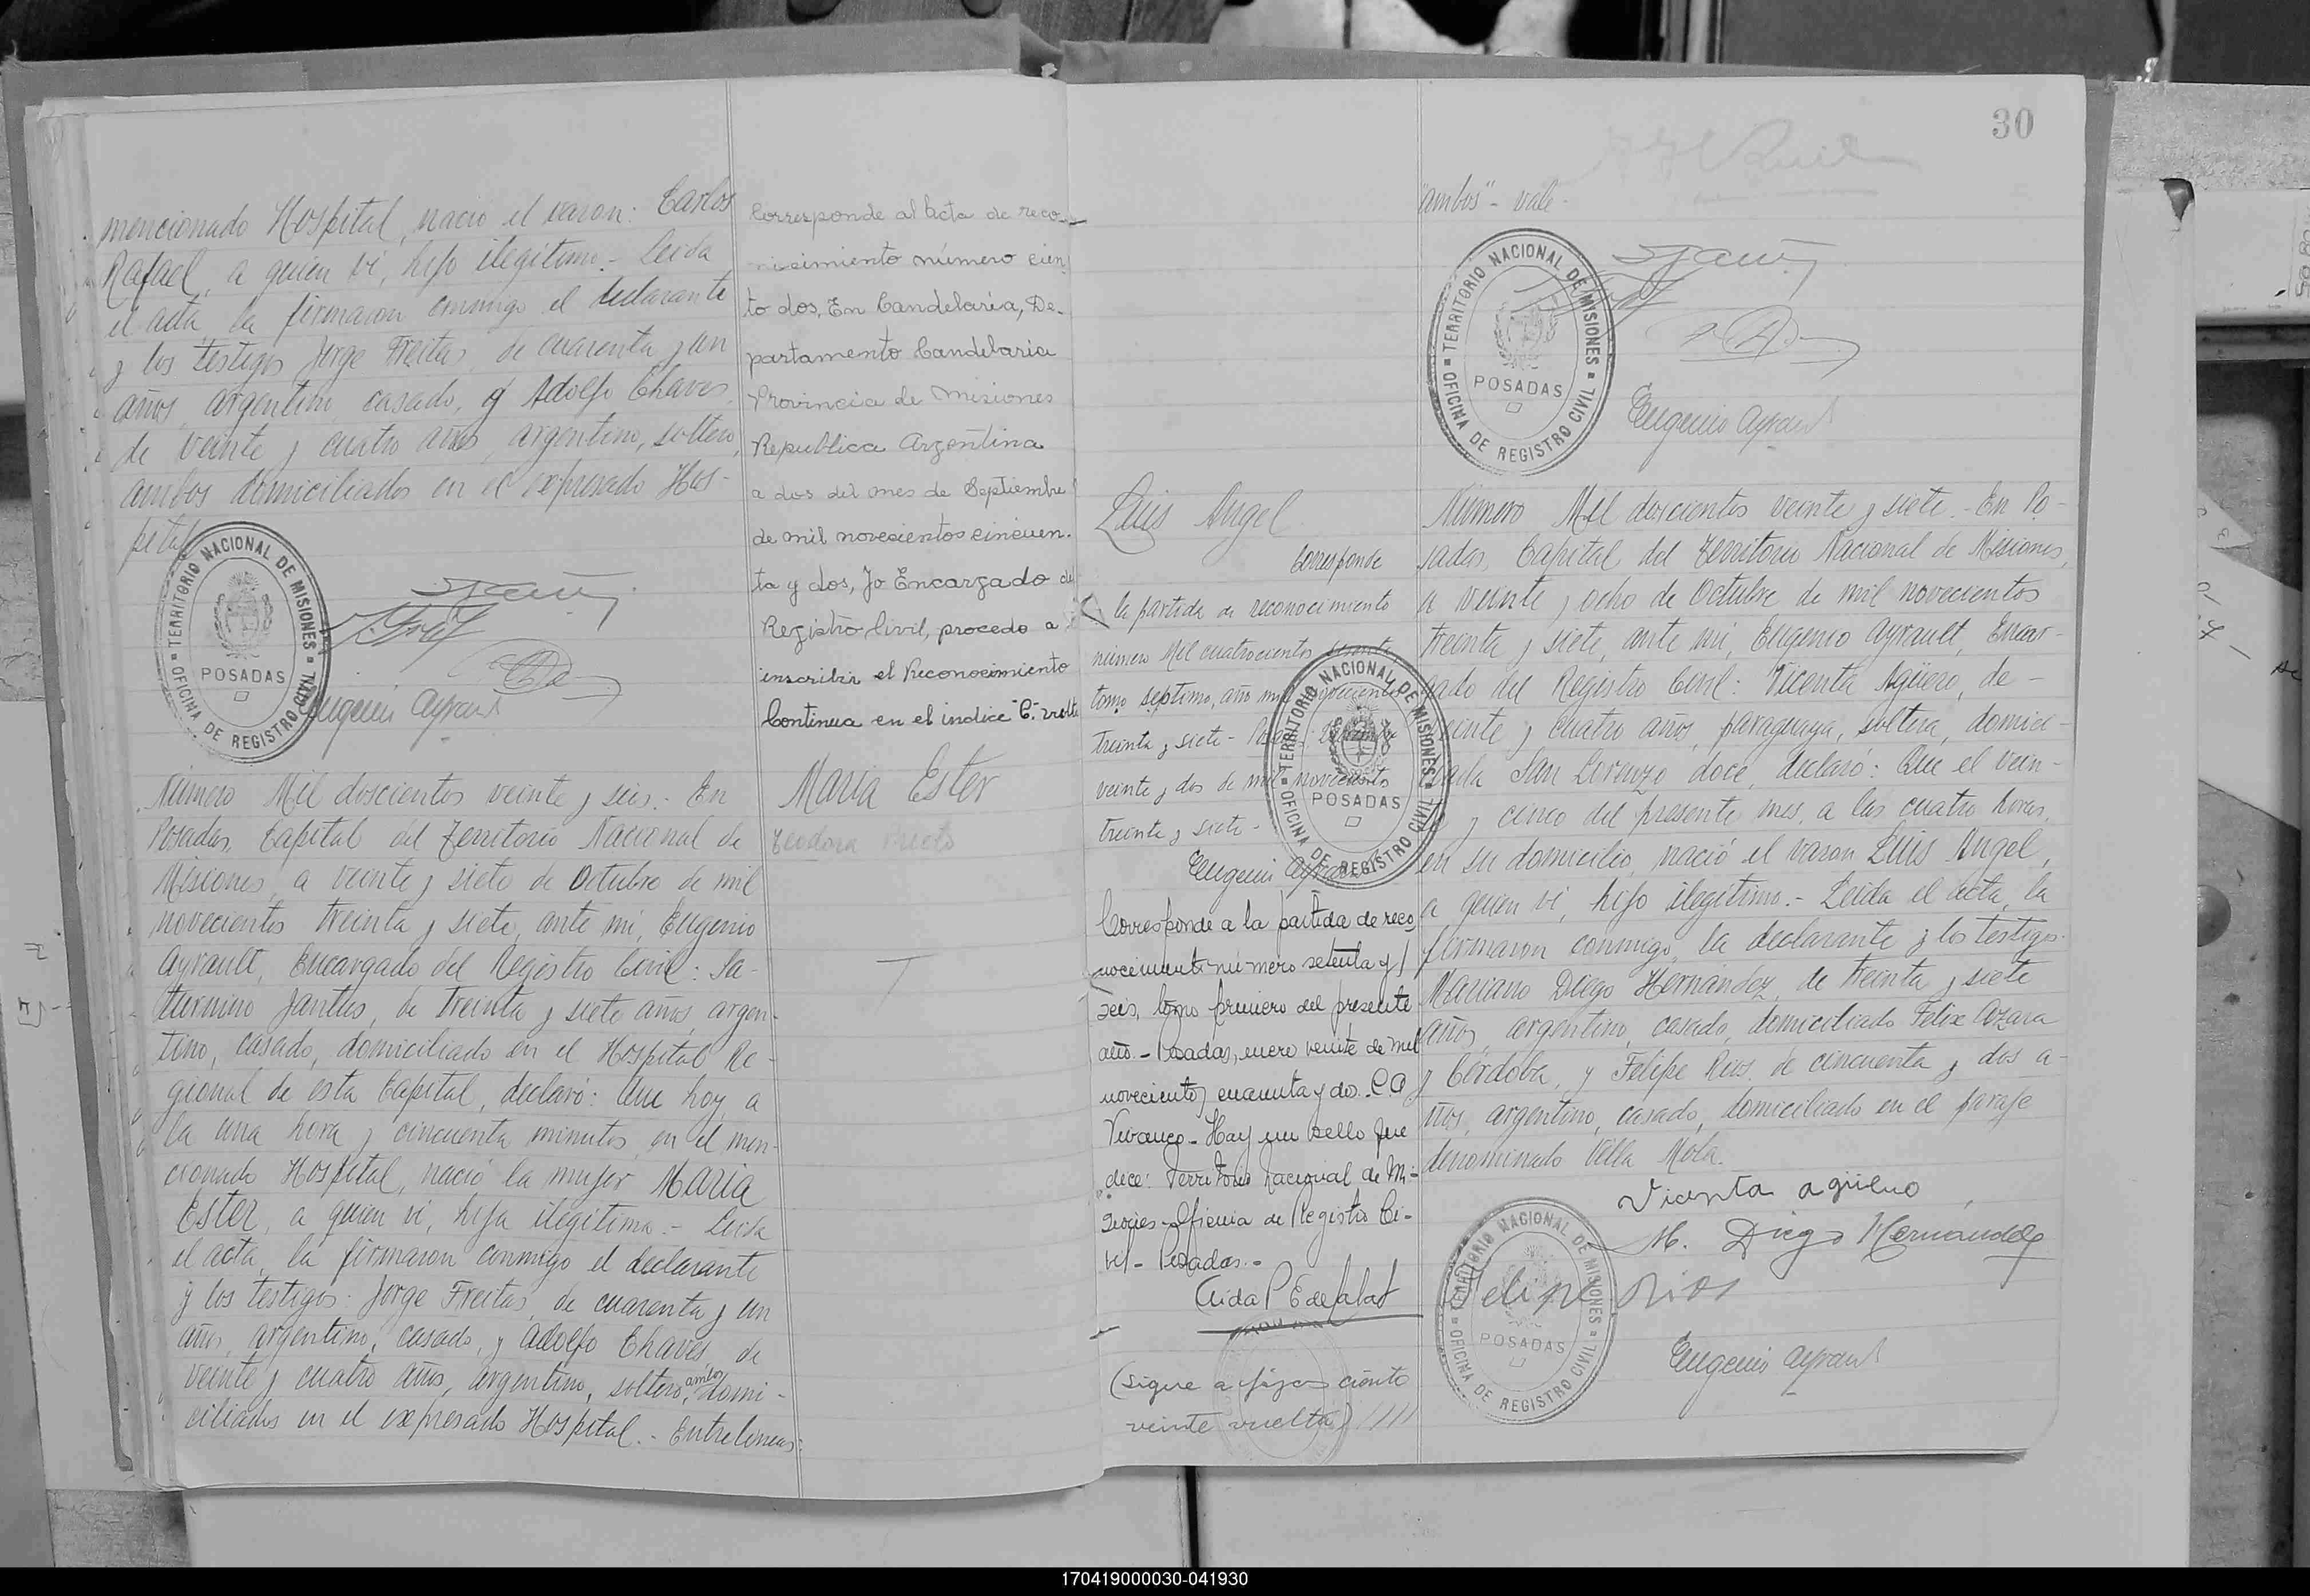 mencionado Hospital, nació el varon: Carlos
Rafael, a quien vi, hijo ilegítimo.- Leída
el acta, la firmaron conmigo el declarante
y los testigos Jorge Freitas, de cuarenta y un
años, argentino, casado, y Adolfo Chaves,
de veinte y cuatro años, argentino, soltero,
ambos domiciliados en el expresado Hos-
pital
TERRITORIO NACIONAL DE MISIONES
OFICINA DE REGISTRO CIVIL
POSADAS
Eugenio Ayrault
Número Mil doscientos veinte y seis.- En
Posadas, Capital del Territorio Nacional de
Misiones, a veinte y siete de Octubre de mil
novecientos treinta y siete, ante mi, Eugenio
Ayrault, Encargado del Registro Civil: Sa-
turnino Jantus, de treinta y siete años, argen-
tino, casado, domiciliado en el Hospital Re-
gional de esta Capital, declaró: Que hoy, a
la una hora y cincuenta minutos, en el men-
cionado Hospital, nació la mujer María
Ester, a quien vi, hija ilegítima.- Leída
el acta, la firmaron conmigo el declarante
y los testigos: Jorge Freitas, de cuarenta y un
años, argentino, casado, y Adolfo Chaves, de
veinte y cuatro años, argentino, soltero, ambos domi-
ciliados en el expresado Hospital.- Entrelineas:
Corresponde al acta de reco-
nocimiento número cien-
to dos, En Candelaria, De-
partamento Candelaria
Provincia de Misiones
Republica Argentina
a dos del mes de Septiembre
de mil novecientos cincuen-
ta y dos, Yo Encargado del
Registro Civil, procedo a
inscribir el Reconocimiento
Continua en el indice "C" vuelta
María Ester
Teodora Prieto
30
"ambos" - vale -
TERRITORIO NACIONAL DE MISIONES
OFICINA DE REGISTRO CIVIL
POSADAS
Eugenio Ayrault
Luis Angel
Corresponde
la partida de reconocimiento
número Mil cuatrocientos sesenta,
tomo septimo, año mil novecientos
treinta y siete -
veinte y dos de mil novecientos
treinta y siete -
Eugenio Ayrault
TERRITORIO NACIONAL DE MISIONES
OFICINA DE REGISTRO CIVIL
POSADAS
Corresponde a la partida de reco
nocimiento número setenta y
seis, tomo primero del presente
año.- Posadas, enero veinte de mil
novecientos cuarenta y dos.- C.A
Vivanco - Hay un sello que
dice: Territorio Nacional de Mi-
siones - Oficina de Registro Ci-
vil - Posadas.-
(sigue a fojas ciento
veinte vuelta)
Número Mil doscientos veinte y siete.- En Po-
sadas, Capital del Territorio Nacional de Misiones,
a veinte y ocho de Octubre de mil novecientos
treinta y siete, ante mi, Eugenio Ayrault, Encar-
gado del Registro Civil: Vicenta Agüero, de
veinte y cuatro años, paraguaya, soltera, domici-
liada San Lorenzo doce, declaró: Que el vein-
te y cinco del presente mes, a las cuatro horas,
en su domicilio, nació el varon Luis Angel,
a quien vi, hijo ilegítimo.- Leída el acta, la
firmaron conmigo, la declarante y los testigos
Mariano Diego Hernández, de treinta y siete
años, argentino, casado, domiciliado Felix Azara
y Córdoba, y Felipe Rios, de cincuenta y dos a-
ños, argentino, casado, domiciliado en el paraje
denominado Villa Mola.
Vicenta agüero
M. Diego Hernández
Felipe Rios
TERRITORIO NACIONAL DE MISIONES
OFICINA DE REGISTRO CIVIL
POSADAS
Eugenio Ayrault
170419000030-041930